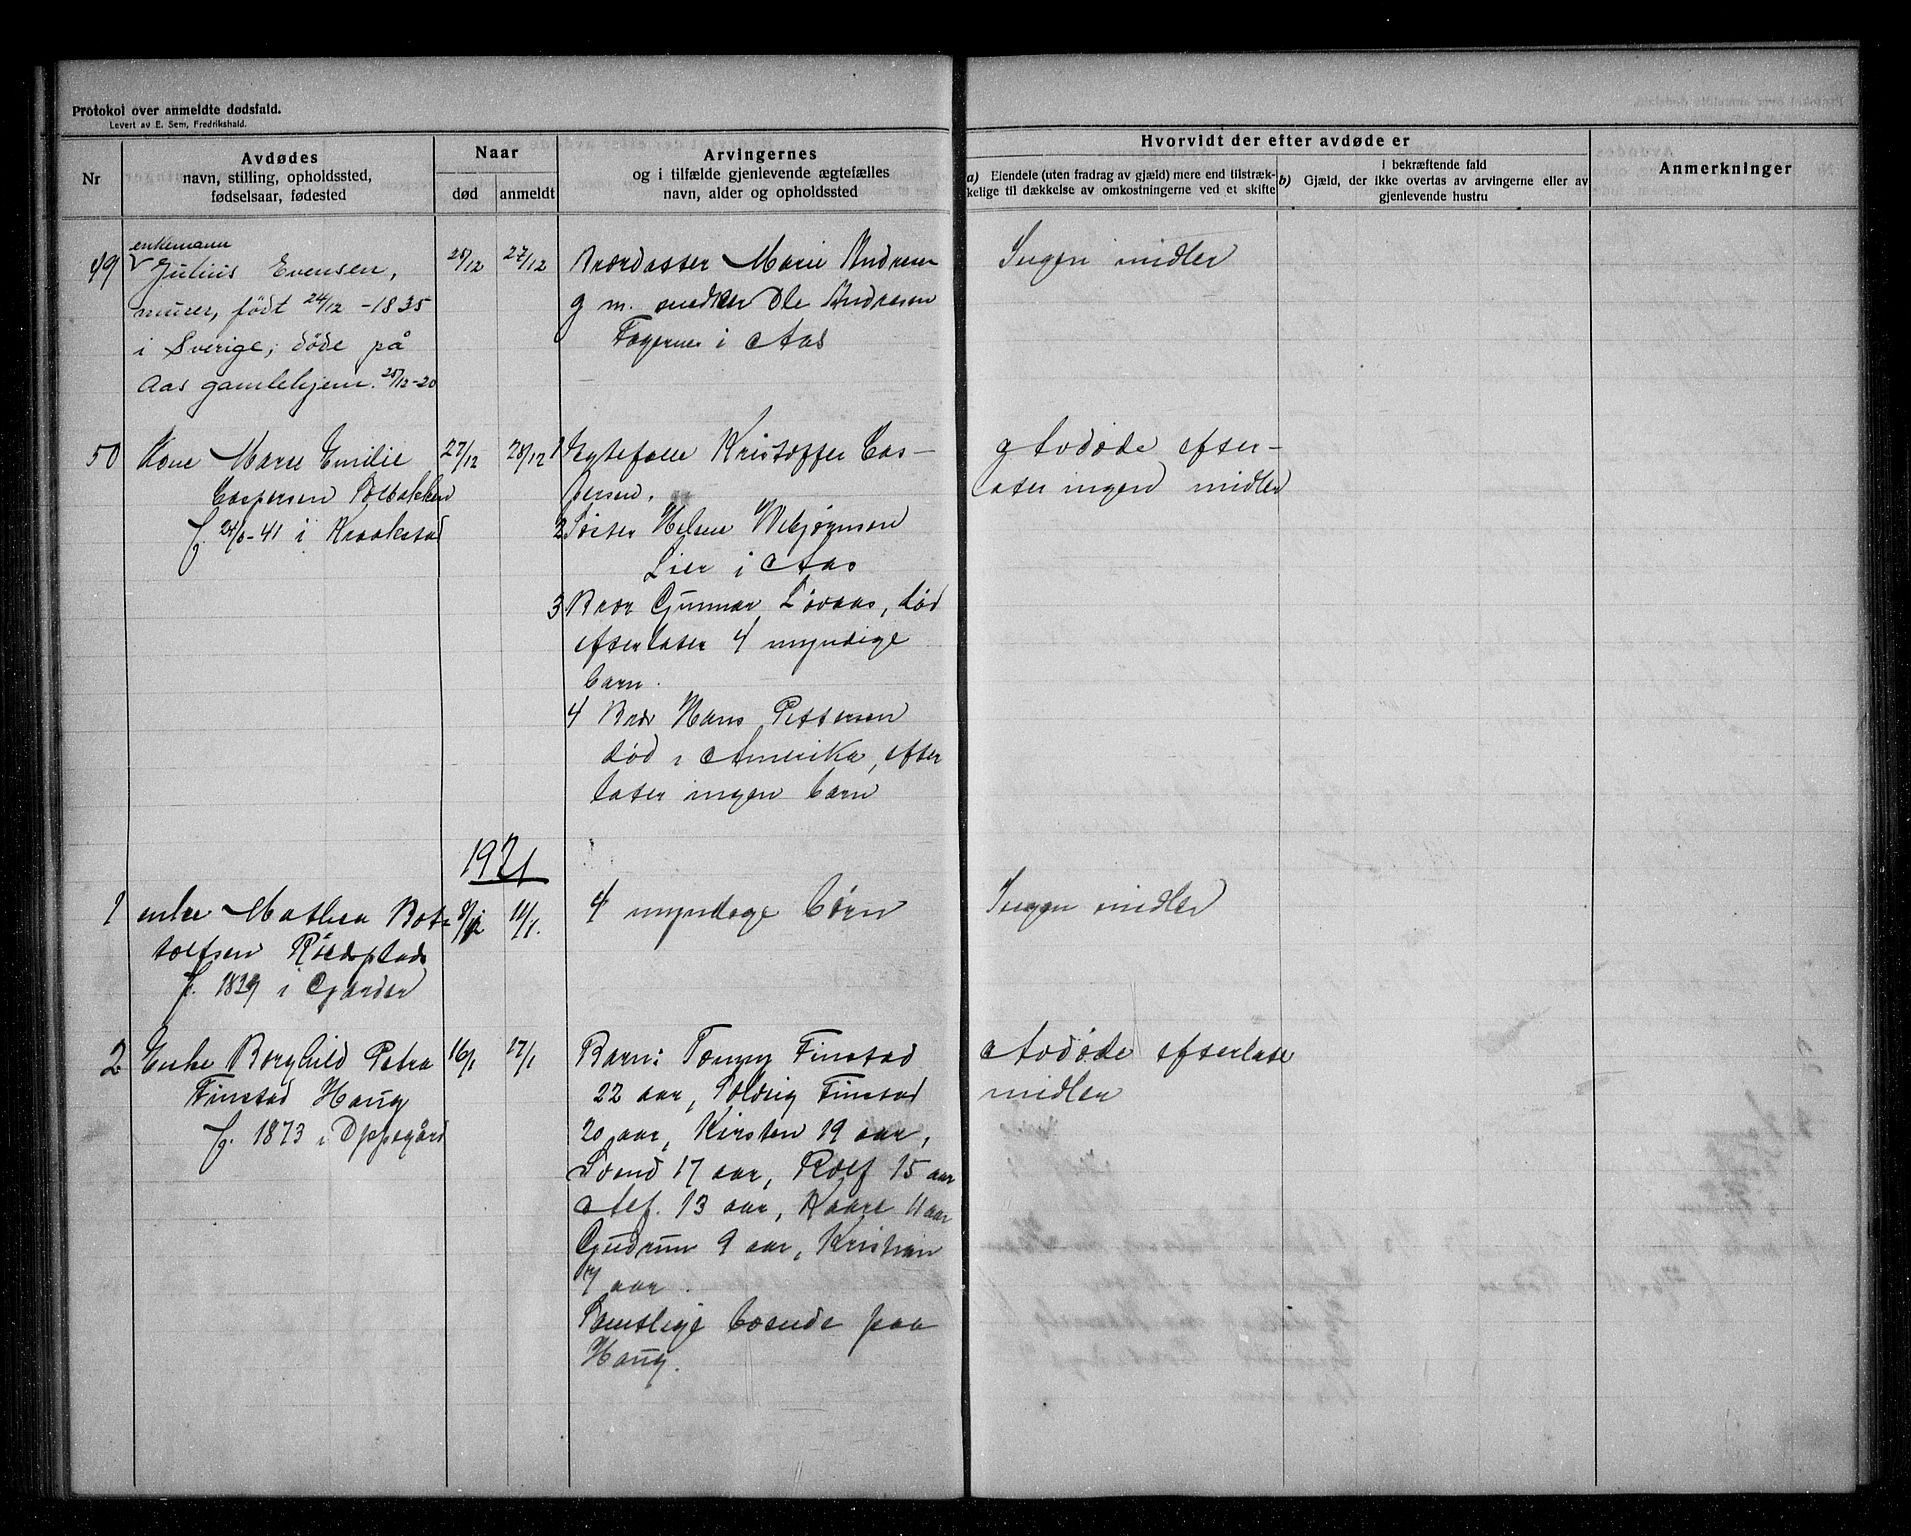 Protokol over anmeldte dødsfald.
Levert av E. Sem, Fredrikshald.
Nr
Avdødes
navn, stilling, opholdssted,
fødselsaar, fødested
Naar
død
anmeldt
Arvingernes
og i tilfælde gjenlevende ægtefælles
navn, alder og opholdssted
Hvorvidt der efter avdøde er
a) Eiendele (uten fradrag av gjæld) mere end tilstræk-
kelige til dækkelse av omkostningerne ved et skifte
i bekræftende fald
b) Gjæld, der ikke overtas av arvingerne eller av
gjenlevende hustru
Anmerkninger
enkemann
49 Julius Evensen,
murer, født 24/12 - 1835
i Sverige, døde på
Aas gamlehjem. 25/12-20
25/12
27/12
Brordatter Marie Andresen
g m. snedker Ole Andresen
Fagernes i Aas
Ingen midler
50 Kone Marie Emilie
Caspersen Solbakken
f. 24/6-41 i Kraakstad
27/12
28/12
1 Egtefælle Kristoffer Cas-
persen.
2 Søster Helene Webjørnsen
Lier i Aas
3 Bror Gunnar Løvaas, død
efterlater 4 myndige
barn.
4 Bror Hans Pettersen
død i Amerika, efter
later ingen barn
Avdøde efter-
later ingen midler
1921
1 enke Mathea Bot-
tolfsen Rödsplads
f. 1839 i Gjarder
8/12
11/1.
4 myndege börn
Ingen midler
2 Enke Borghild Petra
Finstad Haug
f. 1873 i Oppegård
16/1
17/1
Barn: Tonny Finstad
22 aar, Solveig Finstad
20 aar, Kirsten 19 aar,
Svend 17 aar, Rolf 15 aar
Alf. 13 aar, Kaare 11 aar
Gudrun 9 aar, Kristian
7 aar.
Samtlige boende paa
Haug.
Avdøde efterlater
midler